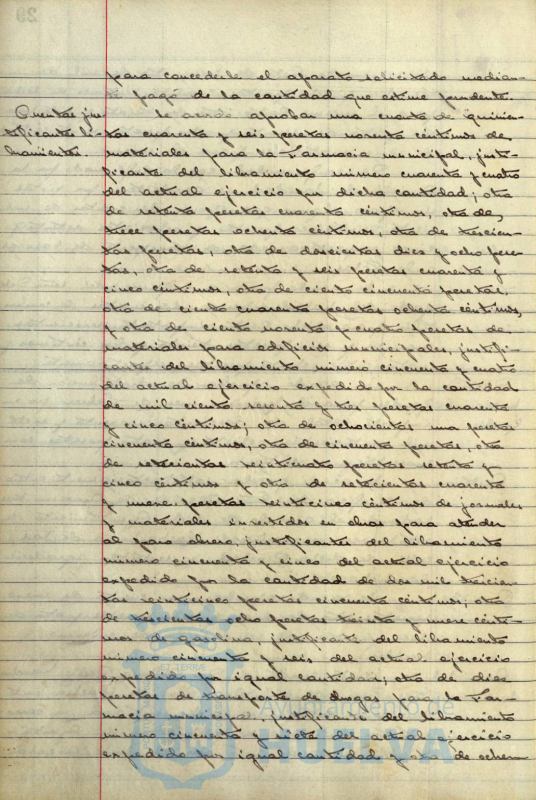 para concederle el aparato solicitado median-
te pago de la cantidad que estime prudente.
Cuentas jus-
tificantes li-
bramientos.
Se acordó aprobar una cuenta de quinien-
tas cuarenta y seis pesetas noventa céntimos de
materiales para la Farmacia municipal, justi-
ficante del libramiento número cuarenta y cuatro
del actual ejercicio por dicha cantidad; otra
de setenta pesetas cuarenta céntimos, otra de
trece pesetas ochenta céntimos, otra de trescien-
tas pesetas, otra de doscientas diez y ocho pese-
tas, otra de setenta y seis pesetas cuarenta y
cinco céntimos, otra de ciento cincuenta pesetas,
otra de ciento cuarenta pesetas ochenta céntimos,
y otra de ciento noventa y cuatro pesetas de
materiales para edificios municipales, justifi-
cantes del libramiento número cincuenta y cuatro
del actual ejercicio expedido por la cantidad
de mil ciento sesenta y tres pesetas cuarenta
y cinco céntimos; otra de ochocientas una pesetas
cincuenta céntimos, otra de cincuenta pesetas, otra
de setecientas veinticuatro pesetas setenta y
cinco céntimos y otra de setecientas cuarenta
y nueve pesetas veinticinco céntimos de jornales
y materiales invertidos en obras para atender
al paro obrero, justificantes del libramiento
número cincuenta y cinco del actual ejercicio
expedido por la cantidad de dos mil trescien-
tas veinticinco pesetas cincuenta céntimos; otra
de trescientas ocho pesetas treinta y nueve cénti-
mos de gasolina, justificante del libramiento
número cincuenta y seis del actual ejercicio
expedido por igual cantidad; otra de diez
pesetas de transporte de drogas para la Far-
macia municipal, justificante del libramiento
número cincuenta y siete del actual ejercicio
expedido por igual cantidad y otra de ochen-
Ayuntamiento de
HUELVA